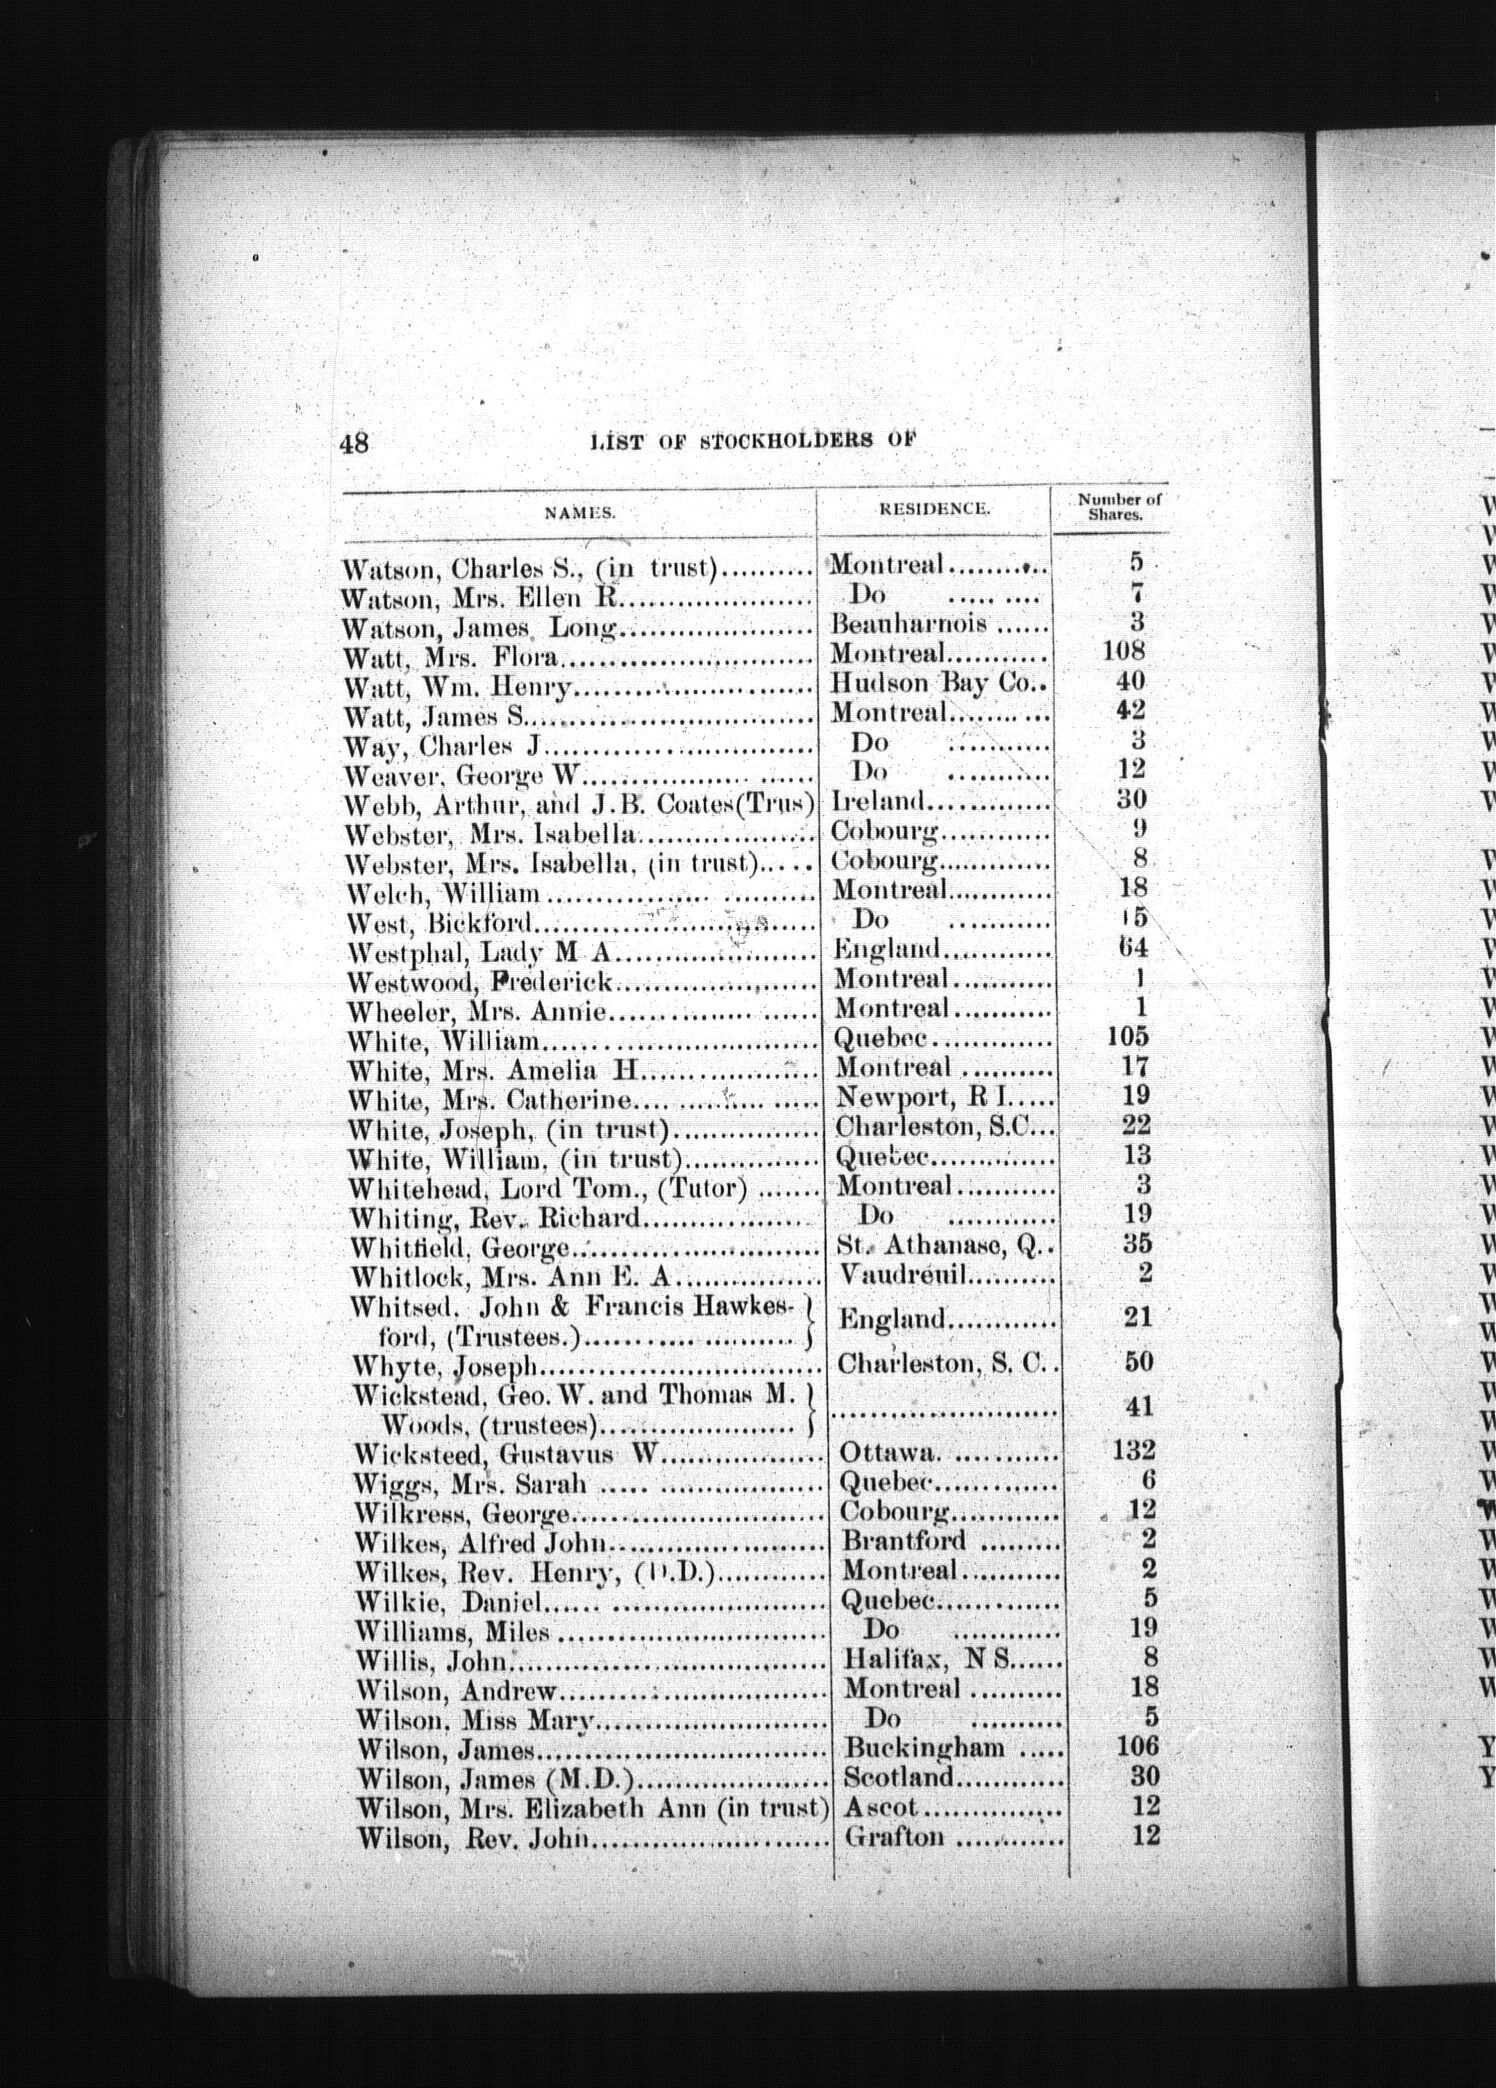 48 LIST OF STOCKHOLDERS OF
NAMES. RESIDENCE. Number of Shares.
Watson, Charles S., (in trust).......... Montreal.......... 5
Watson, Mrs. Ellen R.................... Do ..... .... 7
Watson, James Long.................... Beauharnois ...... 3
Watt, Mrs. Flora.......................... Montreal........... 108
Watt, Wm. Henry......................... Hudson Bay Co.. 40
Watt, James S.............................. Montreal........ ... 42
Way, Charles J............................ Do ........... 3
Weaver, George W................. ...... Do ........... 12
Webb, Arthur, and J.B. Coates(Trus) Ireland............. 30
Webster, Mrs. Isabella................... Cobourg............ 9
Webster, Mrs. Isabella, (in trust)..... Cobourg............. 8
Welch, William ................. .......... Montreal............ 18
West, Bickford............................. Do ........... 15
Westphal, Lady M A..................... England............ 64
Westwood, Frederick..................... Montreal........... 1
Wheeler, Mrs. Annie............... ...... Montreal........... 1
White, William............................. Quebec............. 105
White, Mrs. Amelia H................... Montreal .......... 17
White, Mrs. Catherine.... ......... ..... Newport, R I..... 19
White, Joseph, (in trust)................ Charleston, S.C... 22
White, William, (in trust)............... Quebec.............. 13
Whitehead, Lord Tom., (Tutor) ....... Montreal........... 3
Whiting, Rev. Richard.................. Do ............ 19
Whitfield, George.......................... St. Athanase, Q.. 35
Whitlock, Mrs. Ann E. A................ Vaudreuil.......... 2
Whitsed, John & Francis Hawkes-
ford, (Trustees.)............ .......... } England............ 21
Whyte, Joseph.............................. Charleston, S. C.. 50
Wickstead, Geo. W. and Thomas M.
Woods, (trustees)..................... } ........................ 41
Wicksteed, Gustavus W................. Ottawa. ........... 132
Wiggs, Mrs. Sarah ..... ................. Quebec............. 6
Wilkress, George.......................... Cobourg............ 12
Wilkes, Alfred John...................... Brantford ......... 2
Wilkes, Rev. Henry, (D.D.)............ Montreal........... 2
Wilkie, Daniel...... ...................... Quebec............. 5
Williams, Miles ............................ Do ............ 19
Willis, John................................. Halifax, N S...... 8
Wilson, Andrew........................... Montreal .......... 18
Wilson, Miss Mary........................ Do .......... 5
Wilson, James.............................. Buckingham ..... 106
Wilson, James (M.D.).................... Scotland............ 30
Wilson, Mrs. Elizabeth Ann (in trust) Ascot............... 12
Wilson, Rev. John......................... Grafton ............ 12